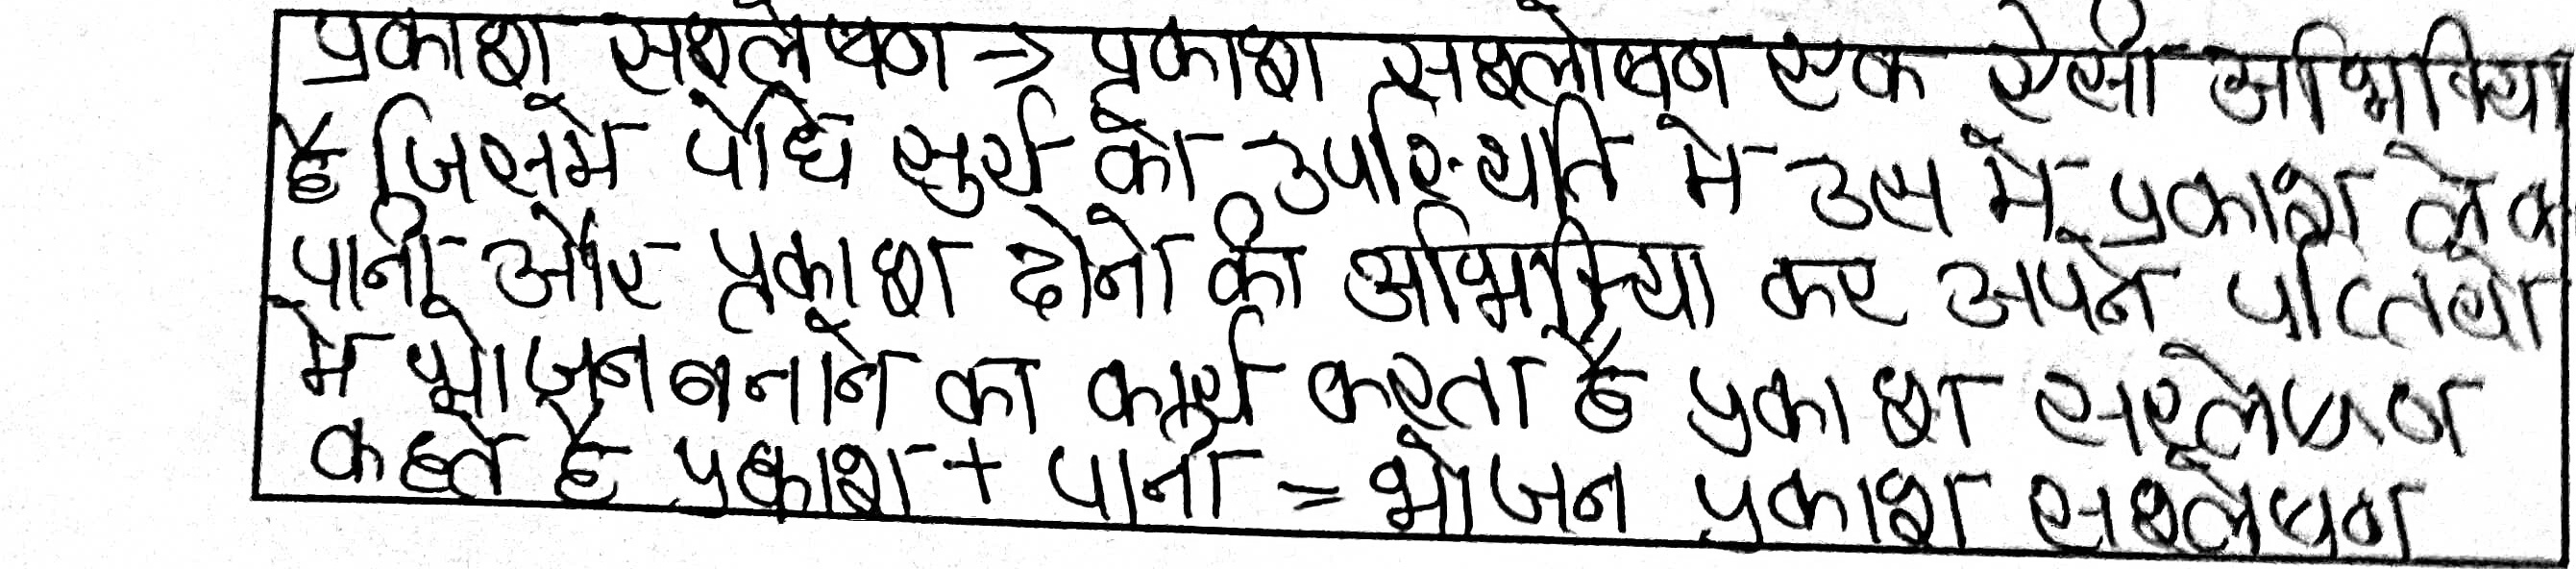 प्रकाश सश्लेषण → प्रकाश सश्लेषण एक ऐसी अभिक्रिया
है जिसमे पौधे सुर्य की उपस्थिति मे उस मे प्रकाश लेक
पानी और प्रकाश दोनो की अभिक्रिया कर अपने पत्तियो
मे भोजन बनाने का कार्य करता है प्रकाश सश्लेषण
कहते है प्रकाश + पानी = भोजन प्रकाश सश्लेषण